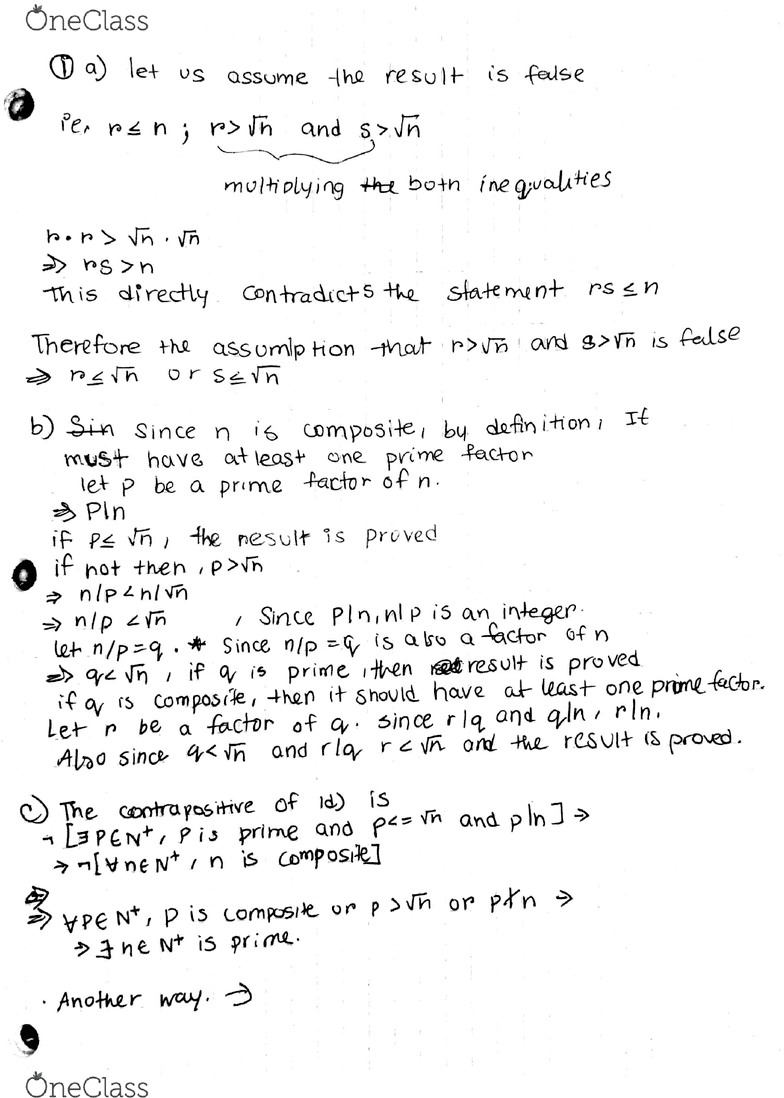 OneClass
① a) let us assume the result is false
ie, r ≤ n ; r>√n and s>√n
multiplying the both inequalities
r · r > √n · √n
⇒ rs > n
This directly contradicts the statement rs ≤ n
Therefore the assumption that r>√n and s>√n is false
⇒ r ≤ √n or s ≤ √n
b) Sin Since n is composite, by definition, It
must have atleast one prime factor
let P be a prime factor of n.
⇒ P|n
if P≤ √n, the result is proved
if not then, p>√n
⇒ n/p < n/√n
⇒ n/p < √n , Since P|n, n|p is an integer.
let n/p = q . * Since n/p = q is also a factor of n
⇒ q< √n , if q is prime, then result is proved
if q is composite, then it should have at least one prime factor.
Let r be a factor of q. since r|q and q|n, r|n.
Also since q<√n and r|q r<√n and the result is proved.
c) The contrapositive of 1d) is
¬ [∃ P∈N⁺, P is prime and p<= √n and p|n] ⇒
⇒ ¬[∀n∈N⁺, n is composite]
⇒ ∀P∈N⁺, P is composite or p>√n or p∤n ⇒
⇒ ∃ n∈ N⁺ is prime.
· Another way. →
OneClass